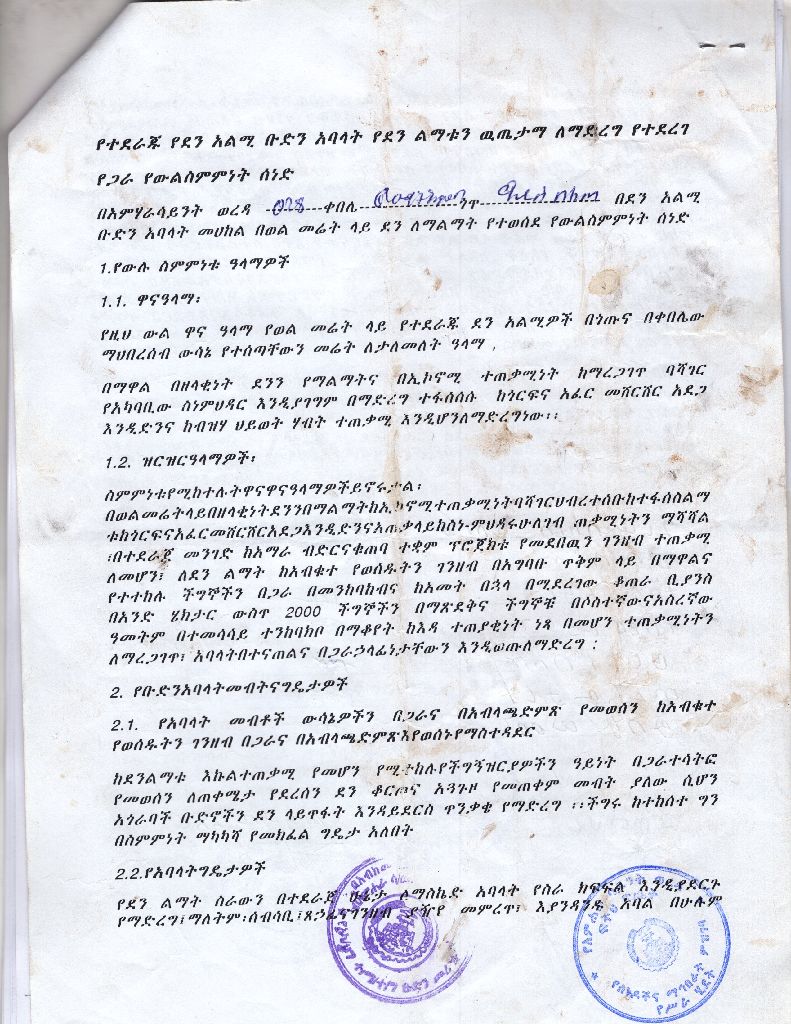 የተደራጁ የደን አልሚ ቡድን አባላት የደን ልማቱን ዉጤታማ ለማድረግ የተደረገ
የጋራ የውልስምምነት ሰነድ
በአምሃራሳይንት ወረዳ 028 ቀበሌ ጎጥ በደን አልሚ
ቡድን አባላት መሀከል በወል መሬት ላይ ደን ለማልማት የተወሰደ የውልስምምነት ሰነድ
1.የውሉ ስምምነቱ ዓላማዎች
1.1. ዋናዓላማ፡
የዚህ ውል ዋና ዓላማ የወል መሬት ላይ የተደራጁ ደን አልሚዎች በጎጡና በቀበሌው
ማህበረሰብ ውሳኔ የተሰጣቸውን መሬት ለታለመለት ዓላማ ,
በማዋል በዘላቂነት ደንን የማልማትና በኢኮኖሚ ተጠቃሚነት ከማረጋገጥ ባሻገር
የአካባቢው ስነምህዳር እንዲያገግም በማድረግ ተፋሰሰሱ ከጎርፍና አፈር መሸርሸር አደጋ
እንዲድንና ከብዝሃ ህይወት ሃብት ተጠቃሚ እንዲሆንለማድረግነው፡፡
1.2. ዝርዝርዓላማዎች፡
ስምምነቱየሚከተሉትዋናዋናዓላማዎችይኖሩታል፡
በወልመሬትላይበዘላቂነትደንንበማልማትከኢኮኖሚተጠቃሚነትባሻገርህብረተሰቡከተፋሰስልማ
ቱከጎርፍናአፈርመሸርሸርአደጋእንዲድንናአጠቃላይከስነ-ምህዳሩሁለገብ ጠቃሚነትን ማሻሻል
፣በተደራጀ መንገድ ከአማራ ብድርናቁጠባ ተቋም ፕሮጀክቱ የመደበዉን ገንዘብ ተጠቃሚ
ለመሆን፣ ለደን ልማት ከአብቁተ የወሰዱትን ገንዘብ በአግባቡ ጥቅም ላይ በማዋልና
የተተከሉ ችግኞችን በጋራ በመንከባከብና ከአመት በኋላ በሚደረገው ቆጠራ ቢያንስ
በአንድ ሄክታር ውስጥ 2000 ችግኞችን በማጽደቅና ችግኞቹ በሶስተኛውናአስረኛው
ዓመትም በተመሳሳይ ተንከባክቦ በማቆየት ከእዳ ተጠያቂነት ነጻ በመሆን ተጠቃሚነትን
ለማረጋገጥ፣ አባላትበተናጠልና በጋራኃላፊነታቸውን እንዲወጡለማድረግ ፡
2. የቡድንአባላትመብትናግዴታዎች
2.1. የአባላት መብቶች ውሳኔዎችን በጋራና በአብላጫድምጽ የመወሰን ከአብቁተ
የወሰዱትን ገንዘብ በጋራና በአብላጫድምጽእየወሰኑየማስተዳደር
ከደንልማቱ እኩልተጠቃሚ የመሆን የሚተከሉየችግኝዝርያዎችን ዓይነት በጋራተሳትፎ
የመወሰን ለጠቀሜታ የደረሰን ደን ቆርጦና አጓጉዞ የመጠቀም መብት ያለው ሲሆን
አጎራባች ቡድኖችን ደን ላይጥፋት እንዳይደርስ ጥንቃቄ የማድረግ ፡፡ችግሩ ከተከሰተ ግን
በስምምነት ማካካሻ የመክፈል ግዴታ አለበት
2.2.የአባላትግዴታዎች
የደን ልማት ስራውን በተደራጀ ሁኔታ ለማስኬድ አባላት የስራ ክፍፍል እንዲያደርጉ
የማድረግ፣ማለትም፡ሰብሳቢ፣ጸኃፊናገንዘብ ያዥየ መምረጥ፣ እያንዳንዱ አባል በሁሉም